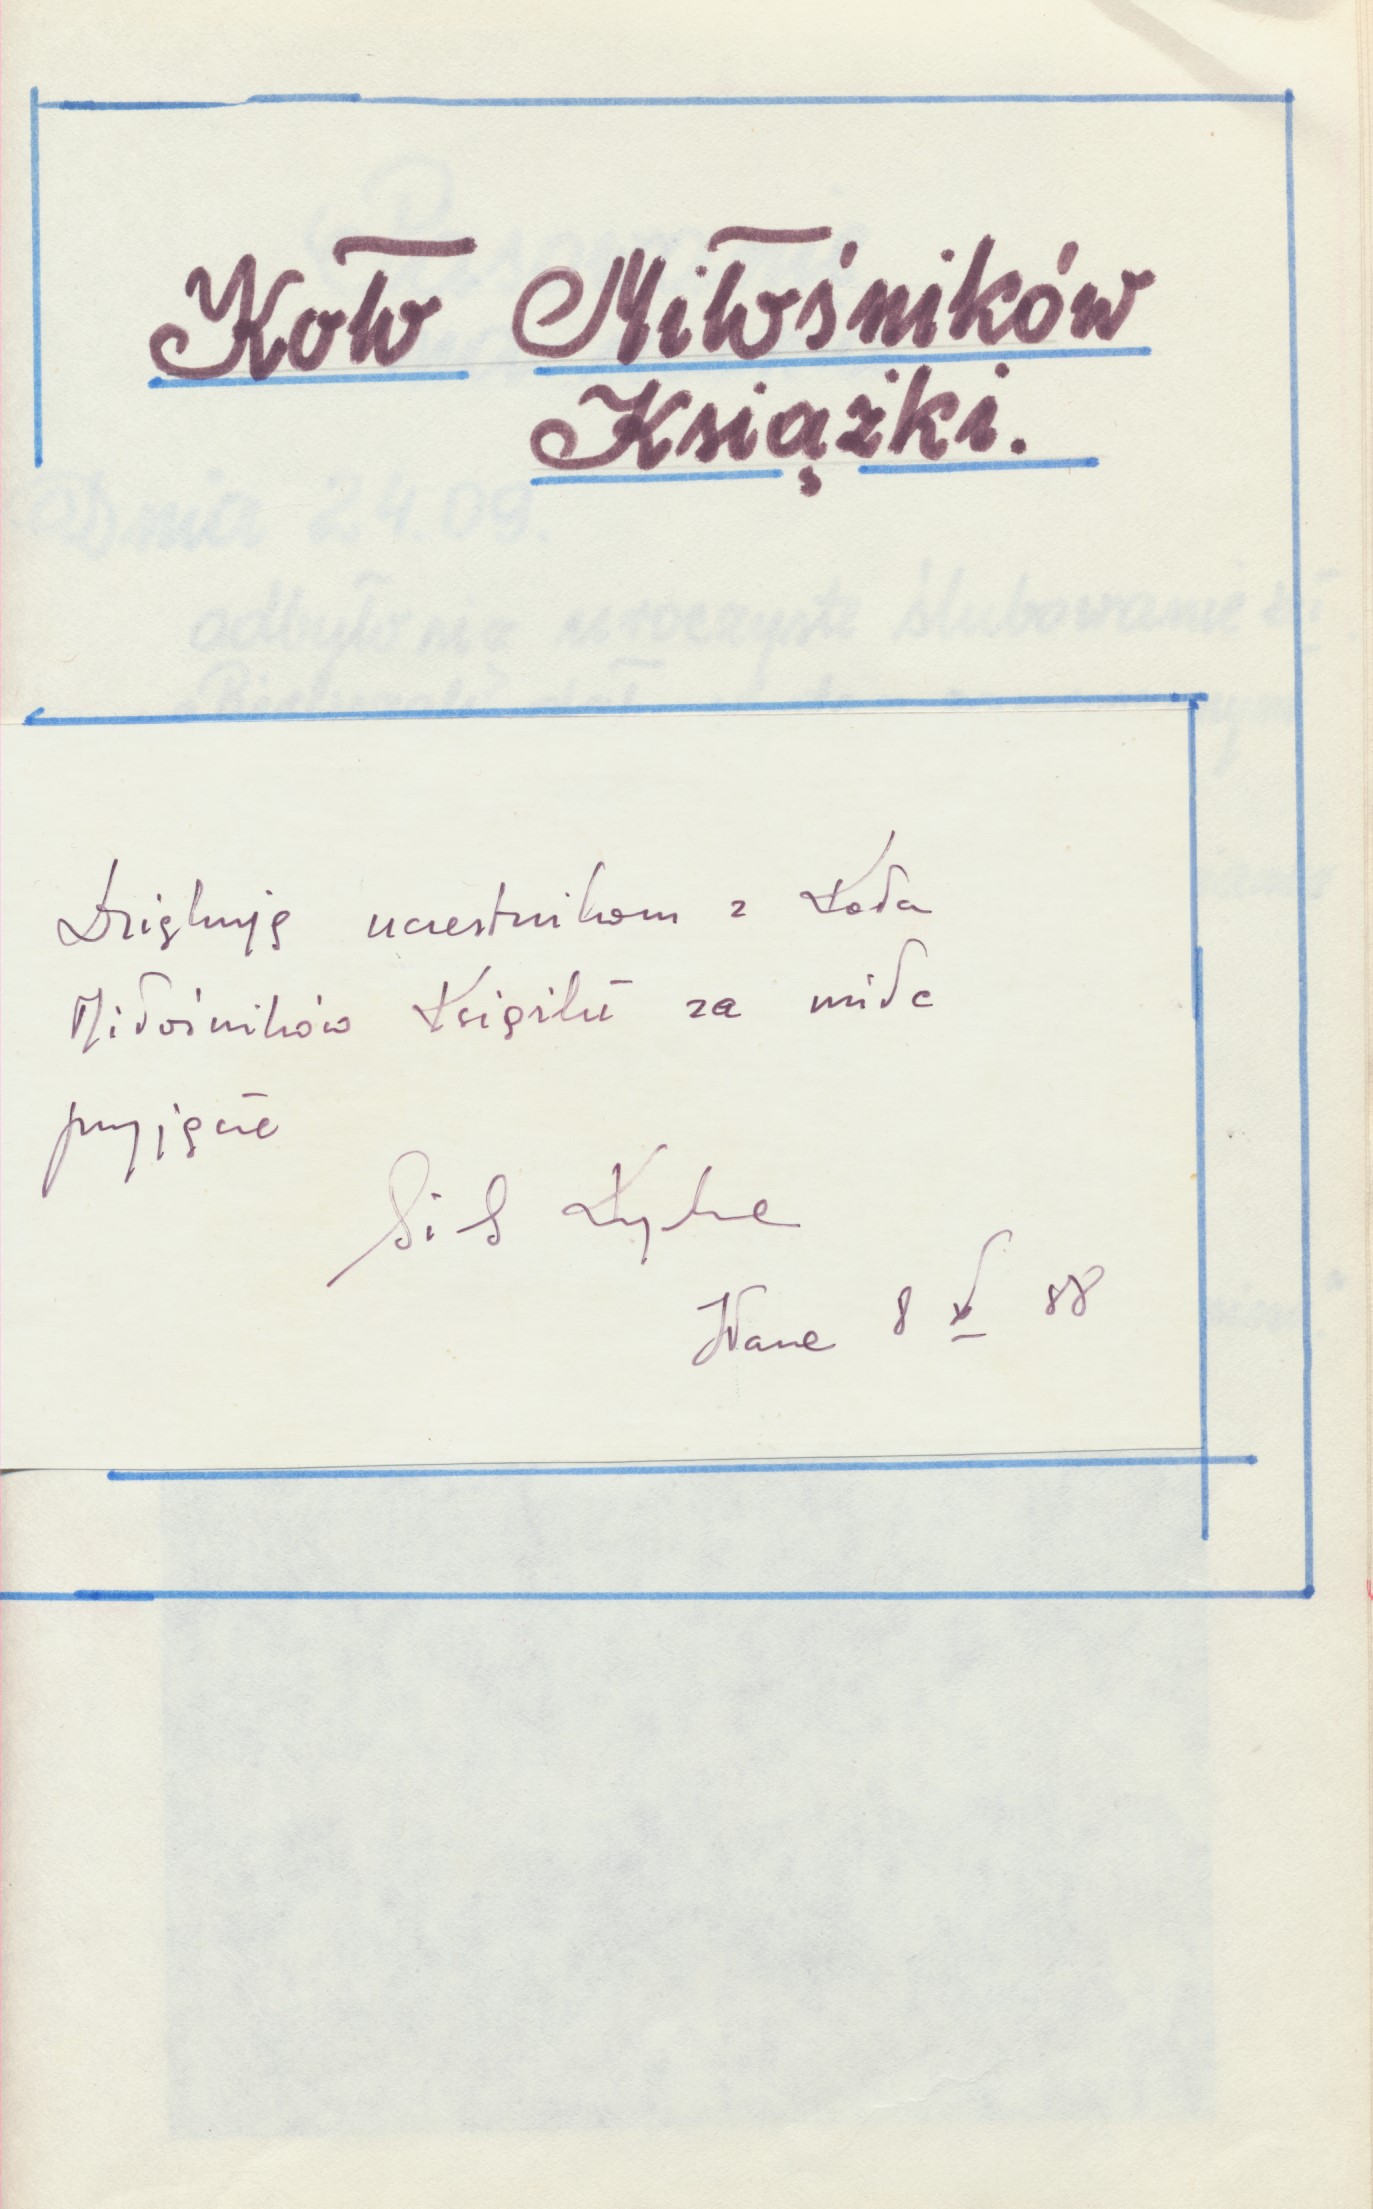 Koło Miłośników
Książki.
Dziękuję uczestnikom z Koła
Miłośników Książki za miłe
przyjęcie
8 X 88